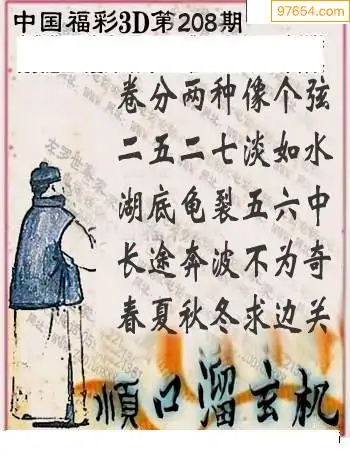 97654.com
中国福彩3D第208期
卷分两种像个弦
二五二七淡如水
湖底龟裂五六中
长途奔波不为奇
春夏秋冬求边关
顺口溜玄机